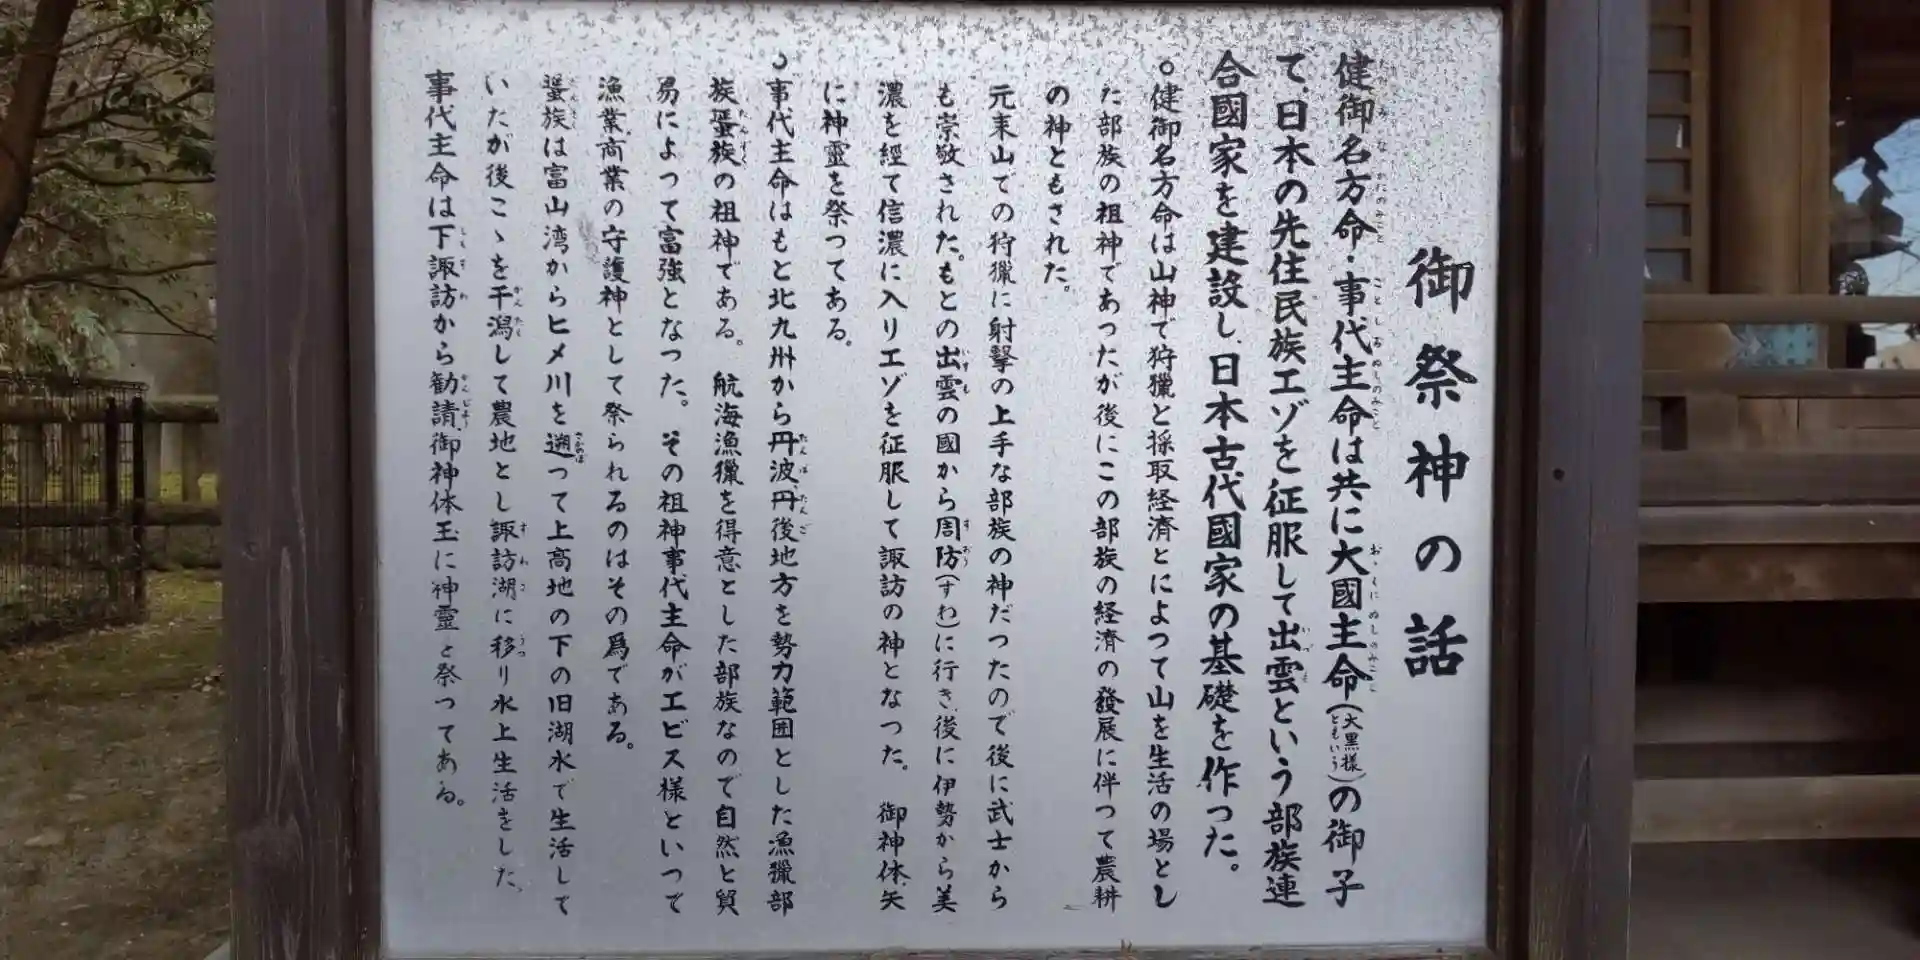 御祭神の話
健御名方命・事代主命は共に大國主命(大黒様ともいう)の御子
で、日本の先住民族エゾを征服して出雲という部族連
合國家を建設し、日本古代國家の基礎を作った。
○健御名方命は山神で狩獵と採取経済とによつて山を生活の場とし
た部族の祖神であったが後にこの部族の経済の發展に伴つて農耕
の神ともされた。
元来山での狩獵に射撃の上手な部族の神だつたので後に武士から
も崇敬された。もとの出雲の國から周防(すわ)に行き、後に伊勢から美
濃を経て信濃に入りエゾを征服して諏訪の神となつた。 御神体、矢
に神靈を祭つてある。
○事代主命はもと北九州から丹波、丹後地方を勢力範囲とした漁獵部
族、蜑族の祖神である。航海漁獵を得意とした部族なので自然と貿
易によつて富強となつた。その祖神事代主命がエビス様といつて
漁業、商業の守護神として祭られるのはその爲である。
蜑族は富山湾からヒメ川を遡つて上高地の下の旧湖水で生活して
いたが後こゝを干潟して農地とし諏訪湖に移り水上生活をした。
事代主命は下諏訪から勧請、御神体玉に神靈を祭つてある。